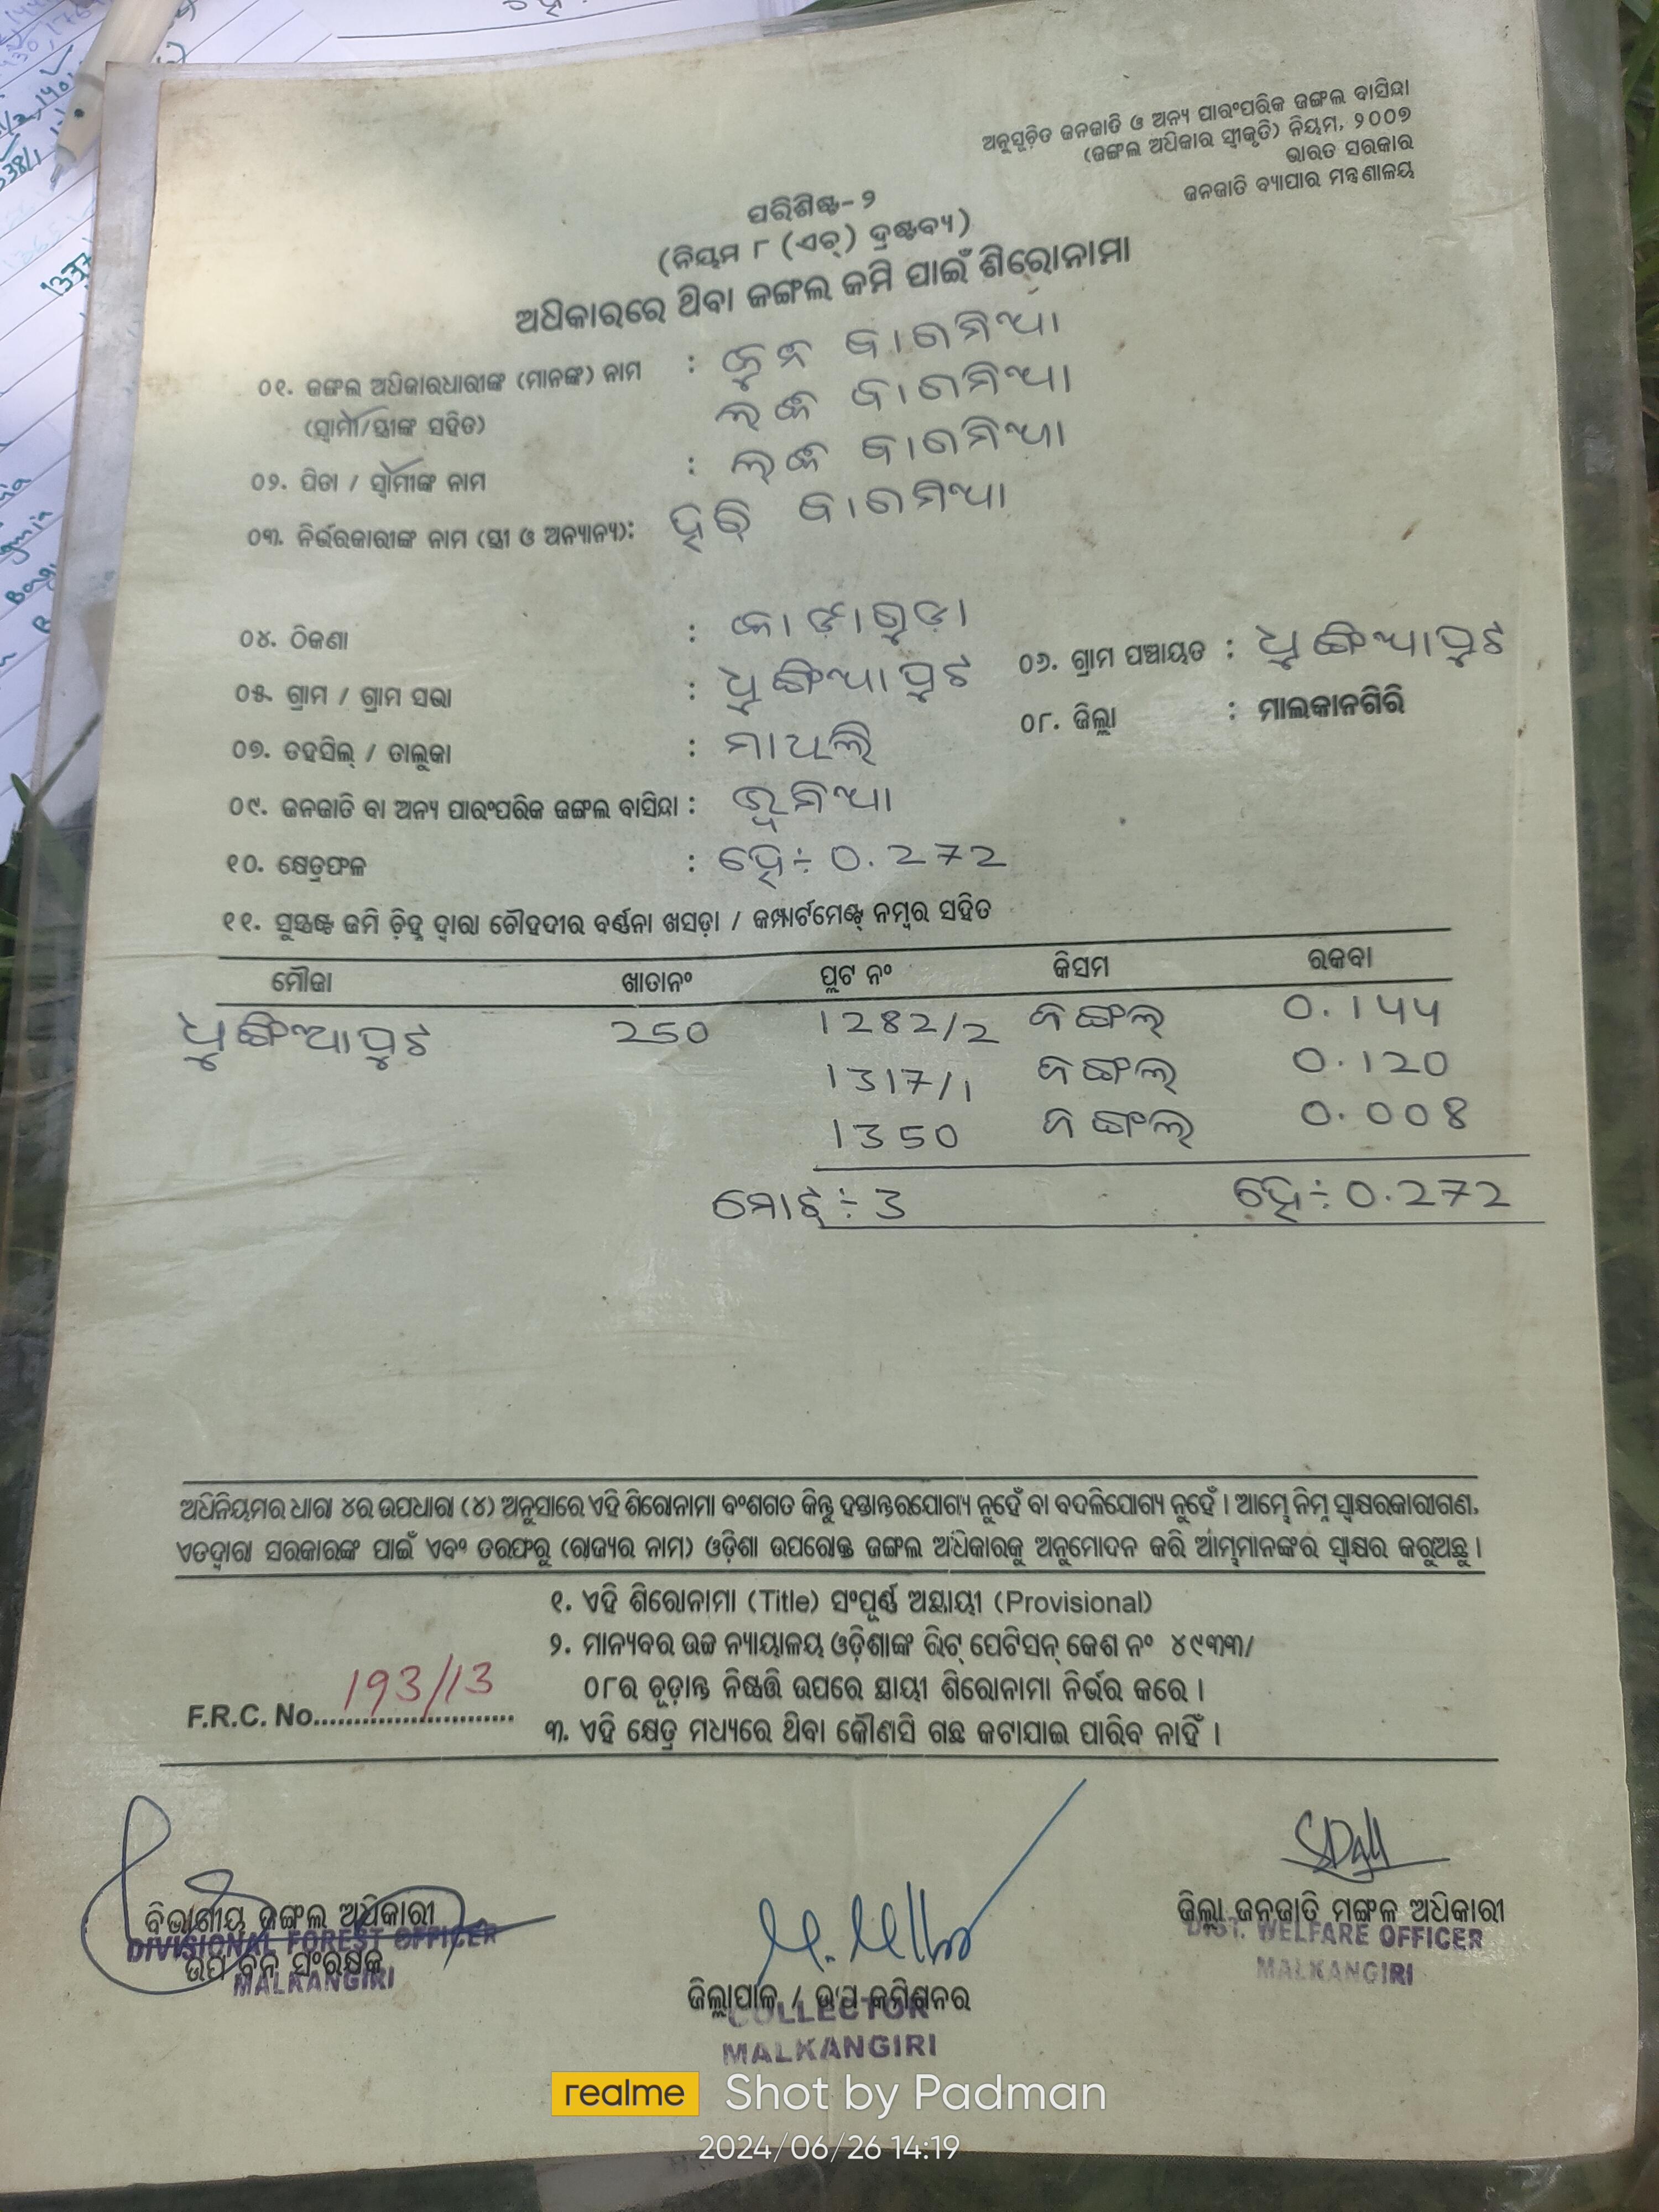 ଅନୁସୂଚିତ ଜନଜାତି ଓ ଅନ୍ୟ ପାରଂପରିକ ଜଙ୍ଗଲ ବାସିନ୍ଦା
(ଜଙ୍ଗଲ ଅଧିକାର ସ୍ୱୀକୃତି) ନିୟମ, ୨୦୦୭
ଭାରତ ସରକାର
ଜନଜାତି ବ୍ୟାପାର ମନ୍ତ୍ରଣାଳୟ
ପରିଶିଷ୍ଟ-୨
(ନିୟମ ୮ (ଏଚ୍) ଦ୍ରଷ୍ଟବ୍ୟ)
ଅଧିକାରରେ ଥିବା ଜଙ୍ଗଲ ଜମି ପାଇଁ ଶିରୋନାମା
୦୧. ଜଙ୍ଗଲ ଅଧିକାରଧାରୀଙ୍କ (ମାନଙ୍କ) ନାମ :
(ସ୍ୱାମୀ/ସ୍ତ୍ରୀଙ୍କ ସହିତ)
୦୨. ପିତା / ସ୍ୱାମୀଙ୍କ ନାମ :
୦୩. ନିର୍ଭରକାରୀଙ୍କ ନାମ (ସ୍ତ୍ରୀ ଓ ଅନ୍ୟାନ୍ୟ): ହରି
୦୪. ଠିକଣା :
୦୫. ଗ୍ରାମ / ଗ୍ରାମ ସଭା : ଧୁଙ୍ଗିଆପୁଟ ୦୬. ଗ୍ରାମ ପଞ୍ଚାୟତ : ଧୁଙ୍ଗିଆପୁଟ
୦୭. ତହସିଲ୍ / ତାଲୁକା : ମାଥିଲି ୦୮. ଜିଲ୍ଲା : ମାଲକାନଗିରି
୦୯. ଜନଜାତି ବା ଅନ୍ୟ ପାରଂପରିକ ଜଙ୍ଗଲ ବାସିନ୍ଦା : ଭୂମିଆ
୧୦. କ୍ଷେତ୍ରଫଳ : ହେ÷ 0.272
୧୧. ସୁସ୍ପଷ୍ଟ ଜମି ଚିହ୍ନ ଦ୍ୱାରା ଚୌହଦୀର ବର୍ଣ୍ଣନା ଖସଡ଼ା / କମ୍ପାର୍ଟମେଣ୍ଟ୍ ନମ୍ବର ସହିତ
ମୌଜା ଖାତାନଂ ପ୍ଲଟ ନଂ କିସମ ରକବା
ଧୁଙ୍ଗିଆପୁଟ 250 1282/2 ଜଙ୍ଗଲ୍ 0.144
1317/1 ଜଙ୍ଗଲ୍ 0.120
1350 ଜଙ୍ଗଲ୍ 0.008
ମୋଟ ÷ 3 ହେ÷ 0.272
ଅଧିନିୟମର ଧାରା ୪ର ଉପଧାରା (୪) ଅନୁସାରେ ଏହି ଶିରୋନାମା ବଂଶଗତ କିନ୍ତୁ ହସ୍ତାନ୍ତରଯୋଗ୍ୟ ନୁହେଁ ବା ବଦଳିଯୋଗ୍ୟ ନୁହେଁ । ଆମ୍ଭେ ନିମ୍ନ ସ୍ୱାକ୍ଷରକାରୀଗଣ,
ଏତଦ୍ୱାରା ସରକାରଙ୍କ ପାଇଁ ଏବଂ ତରଫରୁ (ରାଜ୍ୟର ନାମ) ଓଡ଼ିଶା ଉପରୋକ୍ତ ଜଙ୍ଗଲ ଅଧିକାରକୁ ଅନୁମୋଦନ କରି ଆମ୍ଭମାନଙ୍କର ସ୍ୱାକ୍ଷର କରୁଅଛୁ ।
୧. ଏହି ଶିରୋନାମା (Title) ସଂପୂର୍ଣ୍ଣ ଅସ୍ଥାୟୀ (Provisional)
୨. ମାନ୍ୟବର ଉଚ୍ଚ ନ୍ୟାୟାଳୟ ଓଡ଼ିଶାଙ୍କ ରିଟ୍ ପେଟିସନ୍ କେଶ ନଂ ୪୯୩୩/
୦୮ର ଚୂଡ଼ାନ୍ତ ନିଷ୍ପତ୍ତି ଉପରେ ସ୍ଥାୟୀ ଶିରୋନାମା ନିର୍ଭର କରେ ।
F.R.C. No. 193/13
୩. ଏହି କ୍ଷେତ୍ର ମଧ୍ୟରେ ଥିବା କୌଣସି ଗଛ କଟାଯାଇ ପାରିବ ନାହିଁ ।
ବିଭାଗୀୟ ଜଙ୍ଗଲ ଅଧିକାରୀ
DIVISIONAL FOREST OFFICER
ଉପ ବନ ସଂରକ୍ଷକ
MALKANGIRI
ଜିଲ୍ଲାପାଳ / ଉପ କମିଶନର
COLLECTOR
MALKANGIRI
ଜିଲ୍ଲା ଜନଜାତି ମଙ୍ଗଳ ଅଧିକାରୀ
DIST. WELFARE OFFICER
MALKANGIRI
realme Shot by Padman
2024/06/26 14:19